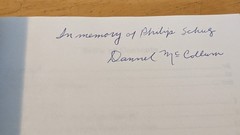 In memory of Philip Schug
Dannel McCollum